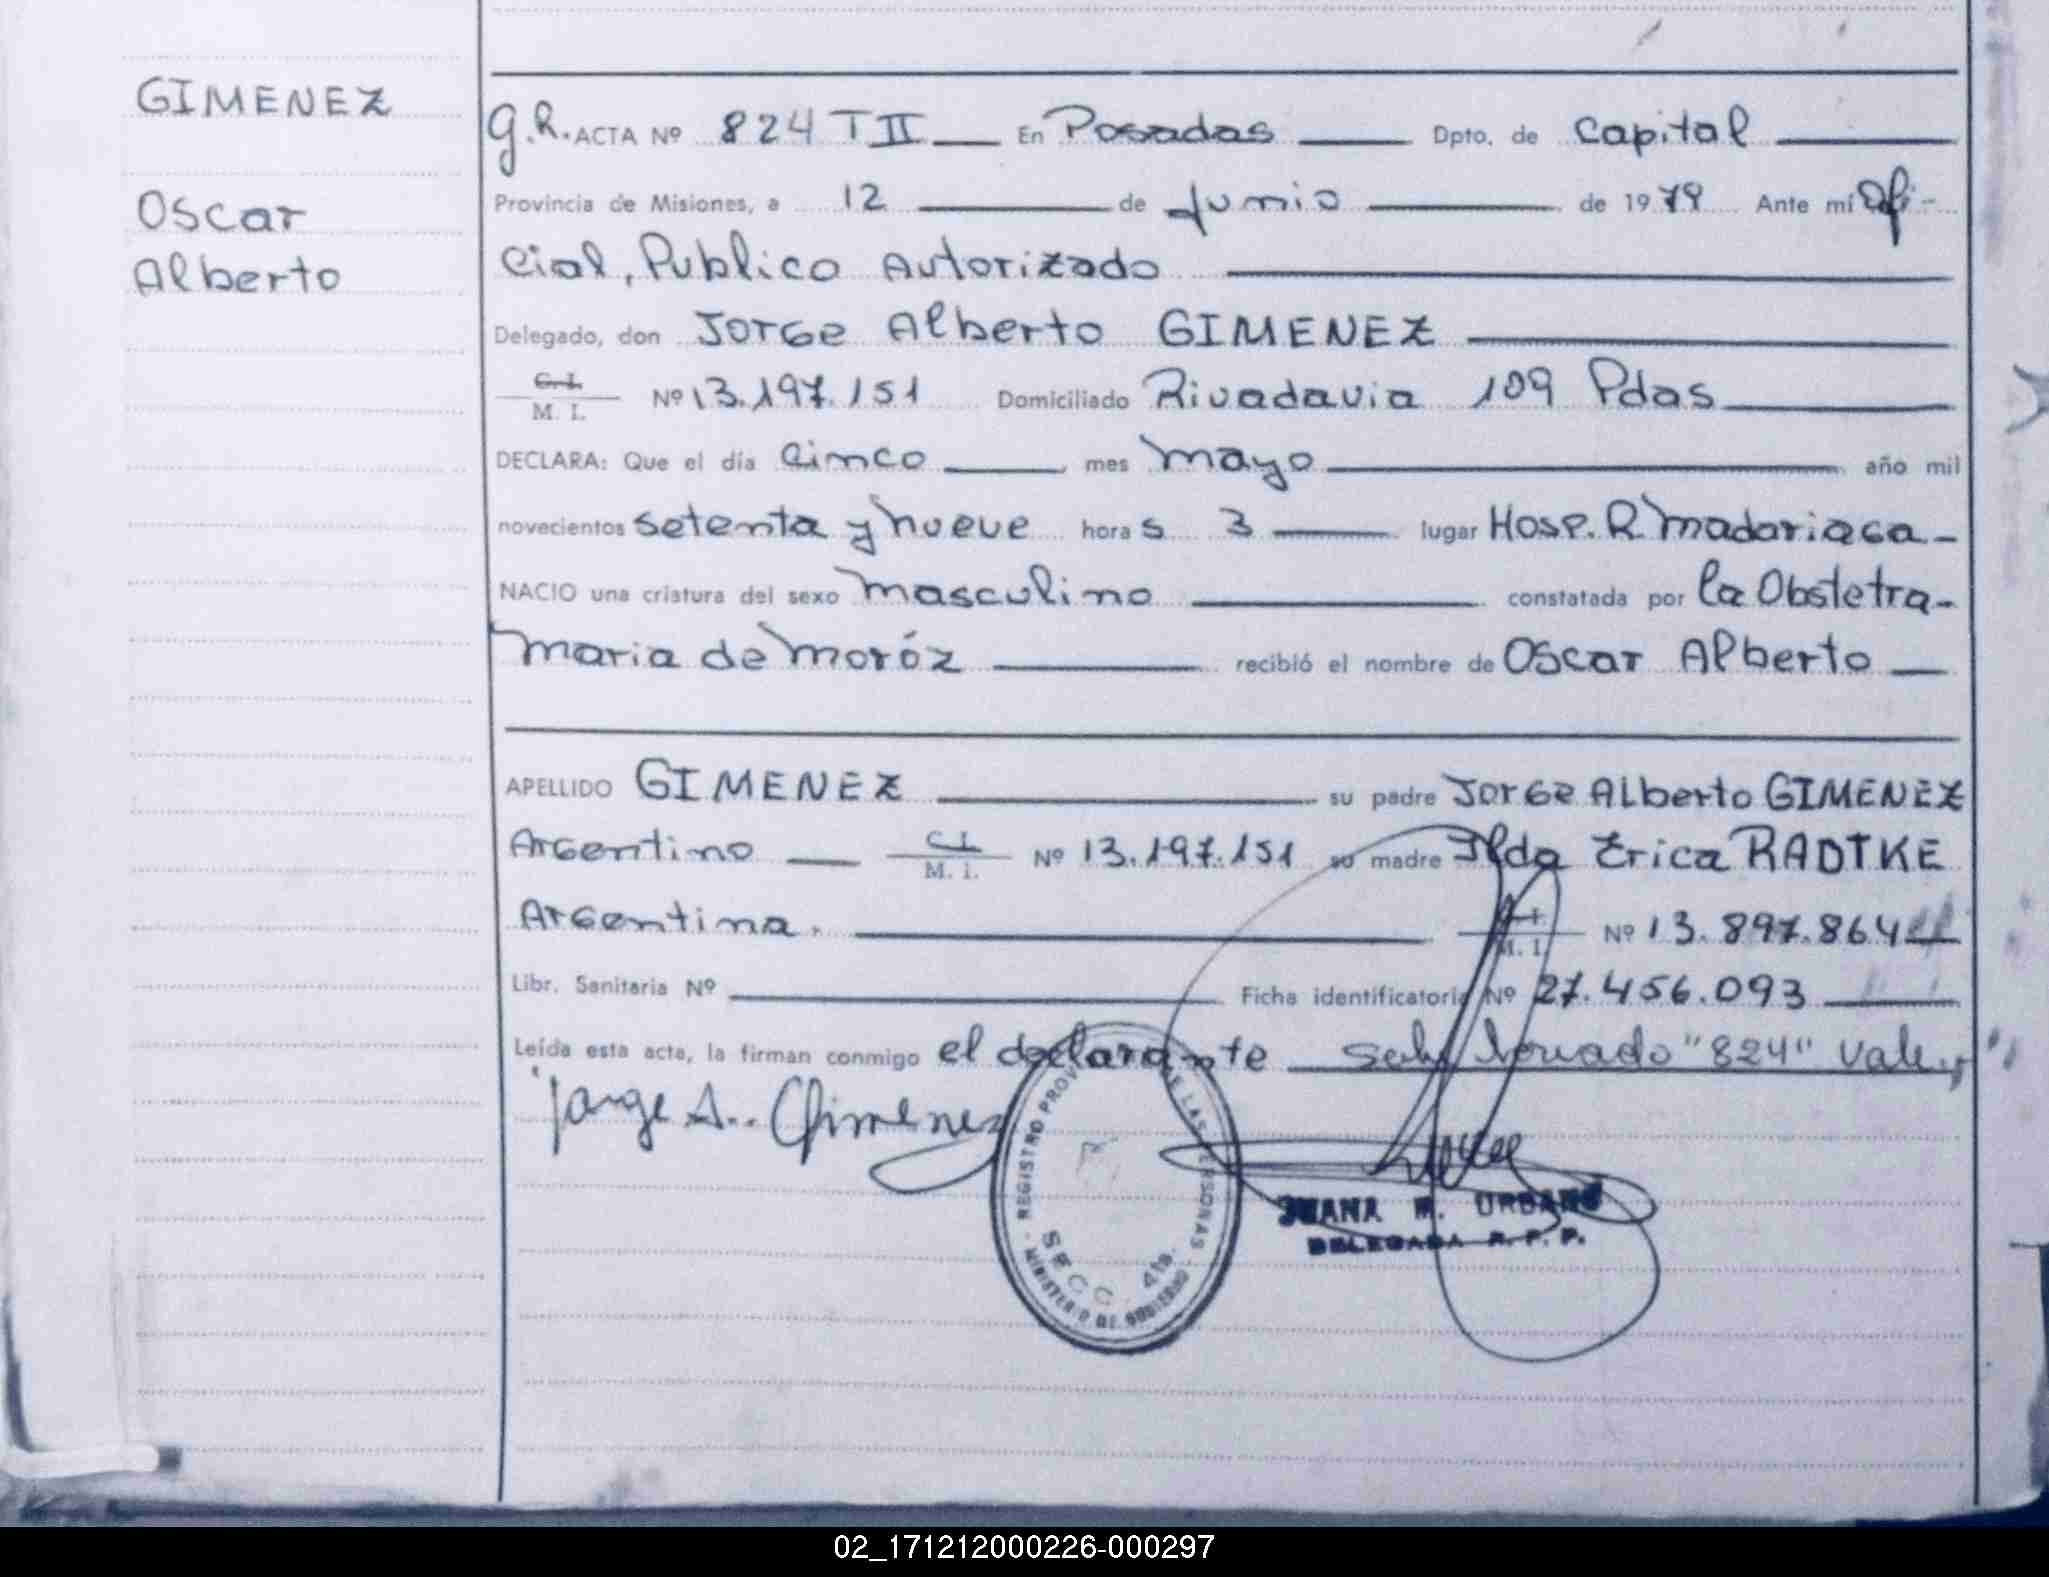 GIMENEZ
Oscar
Alberto
g.R. ACTA Nº 824 T II En Posadas Dpto. de Capital
Provincia de Misiones, a 12 de Junio de 1979 Ante mí Ofi-
cial, Publico Autorizado
Delegado, don Jorge Alberto GIMENEZ
C. I.
M. I. Nº 13.197.151 Domiciliado Rivadavia 109 Pdas
DECLARA: Que el día Cinco mes Mayo año mil
novecientos setenta y nueve hora s 3 lugar Hosp. R. Madariaga-
NACIO una criatura del sexo Masculino constatada por la Obstetra-
Maria de Moróz recibió el nombre de Oscar Alberto
APELLIDO GIMENEZ su padre Jorge Alberto GIMENEZ
Argentino C. I.
M. I. Nº 13.197.151 su madre Ilda Erica RADTKE
Argentina. M. I. Nº 13.897.864
Libr. Sanitaria Nº Ficha identificatoria Nº 27.456.093
Leída esta acta, la firman conmigo el declarante "824" Vale
Jorge A. Gimenez
REGISTRO PROV DE LAS PERSONAS
MINISTERIO DE GOBIERNO
JUANA M. URBANO
DELEGADA R. P. P.
02_171212000226-000297